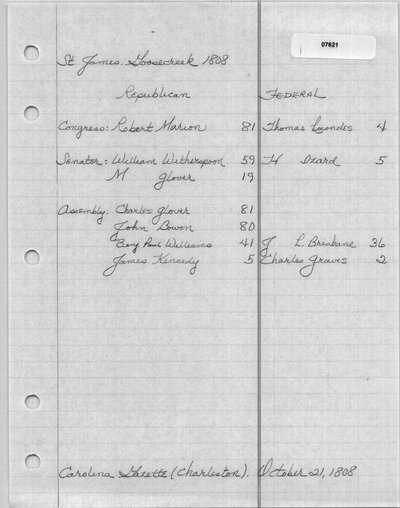 07621
St. James. Goosecreek 1808
Republican FEDERAL
Congress: Robert Marion 81 Thomas Lowndes 4
Senator: William Witherspoon 59 H Izard 5
M glover 19
Assembly: Charles glover 81
John Bowen 80
Benj Paul Williams 41 J L. Brisbane 36
James Kennedy 5 Charles Graves 2
Carolina Gazette (Charleston). October 21, 1808